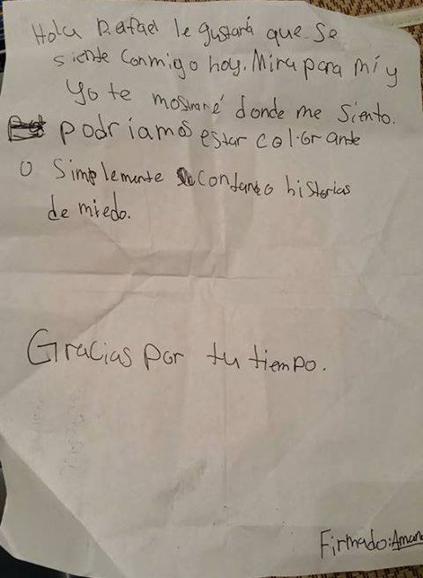 Hola Rafael le gustará que se
siente conmigo hoy. Mira para mí y
yo te mostraré donde me siento.
podríamos estar colorante
o simplemente contando historias
de miedo.
Gracias por tu tiempo.
Firmado: Aman